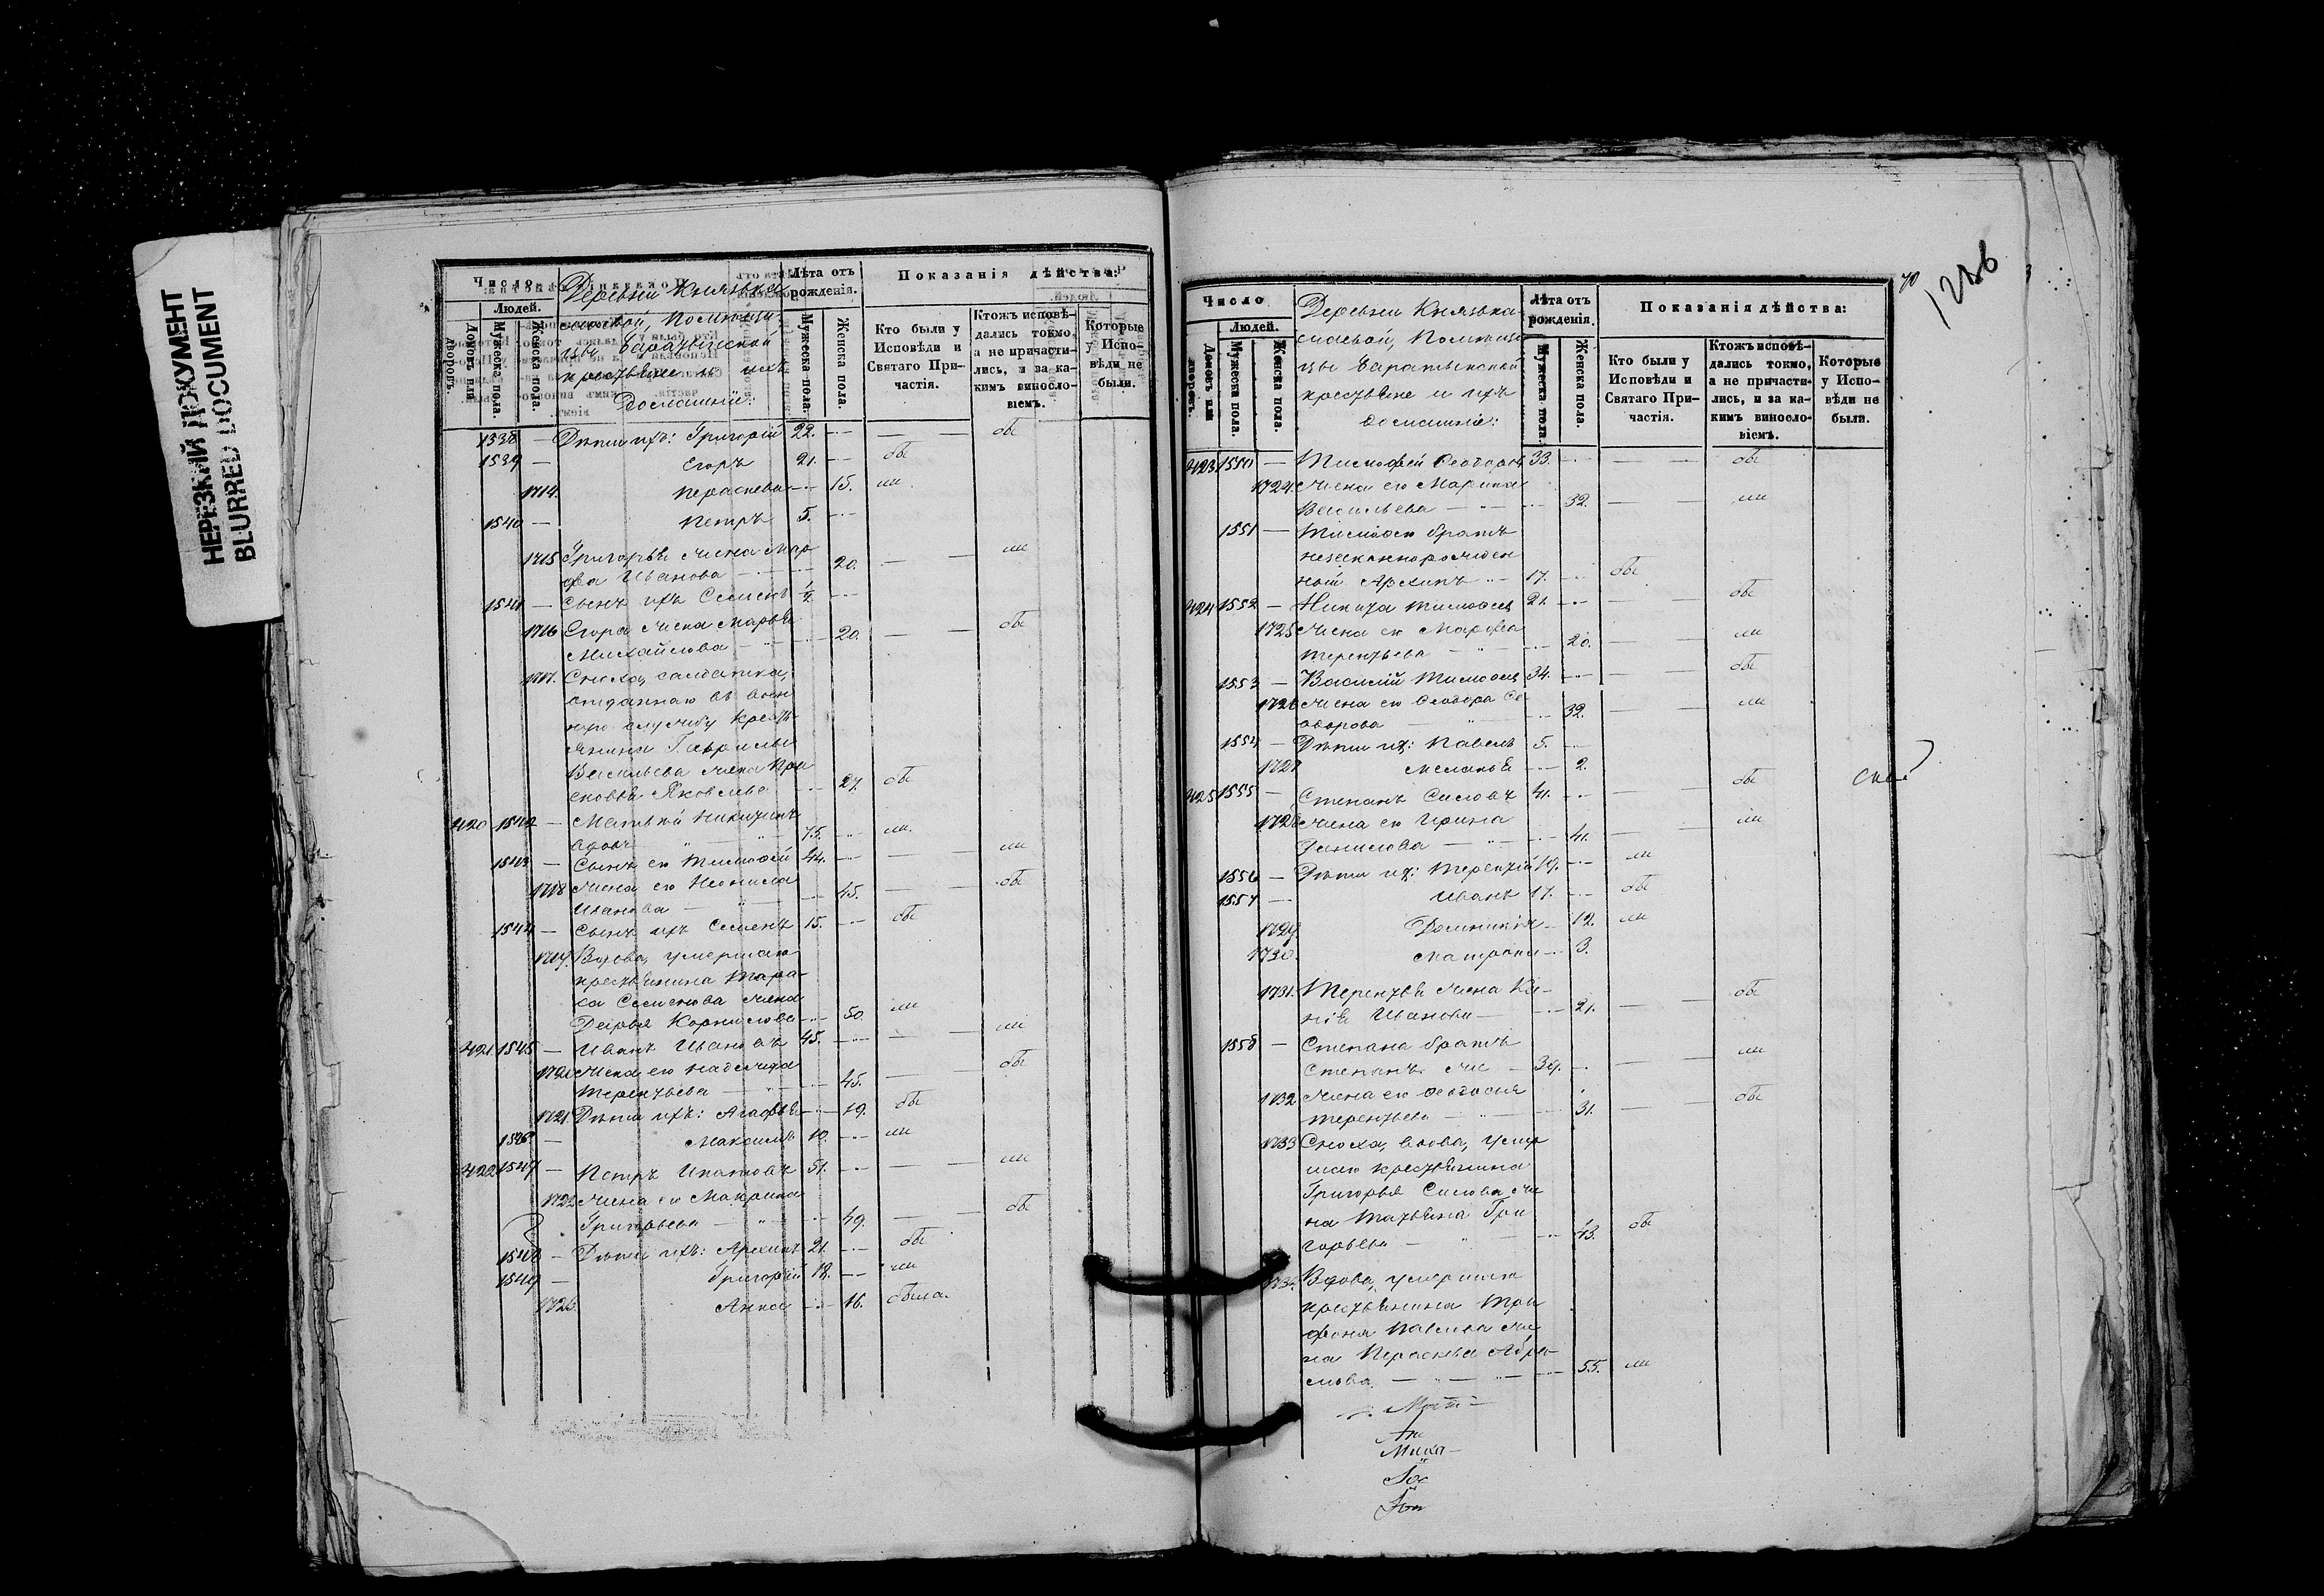 НЕРЕЗКИЙ ДОКУМЕНТ
BLURRED DOCUMENT
Число
Людей.
Домовъ или дворовъ.
Мужеска пола.
Женска пола.
Деревни Князька
крестьяне и ихъ
Домашніи:
Лѣта отъ рожденія.
Мужеска пола.
Женска пола.
Показанія дѣйства:
Кто были у Исповѣди и Святаго Причастія.
Ктожъ исповѣдались токмо, а не причастились, и за какимъ винословіемъ.
Которые у Исповѣди не были.
1538 — Дѣти ихъ: Григорій 22.
1539 — Егоръ 21.
1714. Параскева 15.
1540 — Петръ 5.
1715 Григорья жена Мар
фа Иванова 20.
1541 — Сынъ ихъ Семенъ
1716 Егора жена Марья
Михайлова 20.
1717. Сноха, салдатка,
отданнаго въ воен
ную службу кресть
янина Гаврилы
Васильева жена
Яковлева 27.
420 1542 — Матвѣй Никитинъ
вдовъ 75.
1543 — Сынъ его Тимофей 44.
1718 Жена его Неонила
Иванова 45.
1544 — Сынъ ихъ Семенъ 15.
1719. Вдова, умершаго
крестьянина Тара
са Семенова жена
Дарья Корнилова 50.
421 1545 — Иванъ Ивановъ 45.
1720 Жена его Надежда
Терентьева 45.
1721. Дѣти ихъ: Агафья 19.
1546 — Максимъ 10.
422 1547 — Петръ Игнатовъ 51.
1722 Жена его Макрина
Григорьева 49.
1548 — Дѣти ихъ: Архипъ 21.
1549 — Григорій 18.
1723. Анна 16. была.
70
1236
Число
Людей.
Домовъ или дворовъ.
Мужеска пола.
Женска пола.
Деревни Князька
крестьяне и ихъ
домашніе:
Лѣта отъ рожденія.
Мужеска пола.
Женска пола.
Показанія дѣйства:
Кто были у Исповѣди и Святаго Причастія.
Ктожъ исповѣдались токмо, а не причастились, и за какимъ винословіемъ.
Которые у Исповѣди не были.
423 1550 — Тимофей Ѳедоровъ 33.
1724. Жена его Марина
Васильева 32.
1551 — Тимофея братъ
незаконнорожден
ный Архипъ 17.
424 1552 — Никита Тимофеевъ 21.
1725 Жена его Марфа
Терентьева 20.
1553 — Василій Тимофеевъ 34.
1726 Жена его Ѳедора Ѳе
дорова 32.
1554 — Дѣти ихъ: Павелъ 5.
1727 Меланья 2.
425 1555 — Степанъ Силовъ 41.
1728 Жена его Ирина
Данилова 41.
1556 — Дѣти ихъ: Терентій 19.
1557 — Иванъ 17.
1729. Домникія 12.
1730. Матрона 3.
1731. Терентья жена
Иванова 21.
1558 — Степана братъ
Степанъ же 39.
1732 Жена его Ѳеодосія
Терентьева 31.
1733 Сноха, вдова, умер
шаго крестьянина
Григорья Силова же
на Татьяна Гри
горьева 43.
1734. Вдова, умершаго
крестьянина Три
фона Павлова же
на Параскева Абра
мова 55.